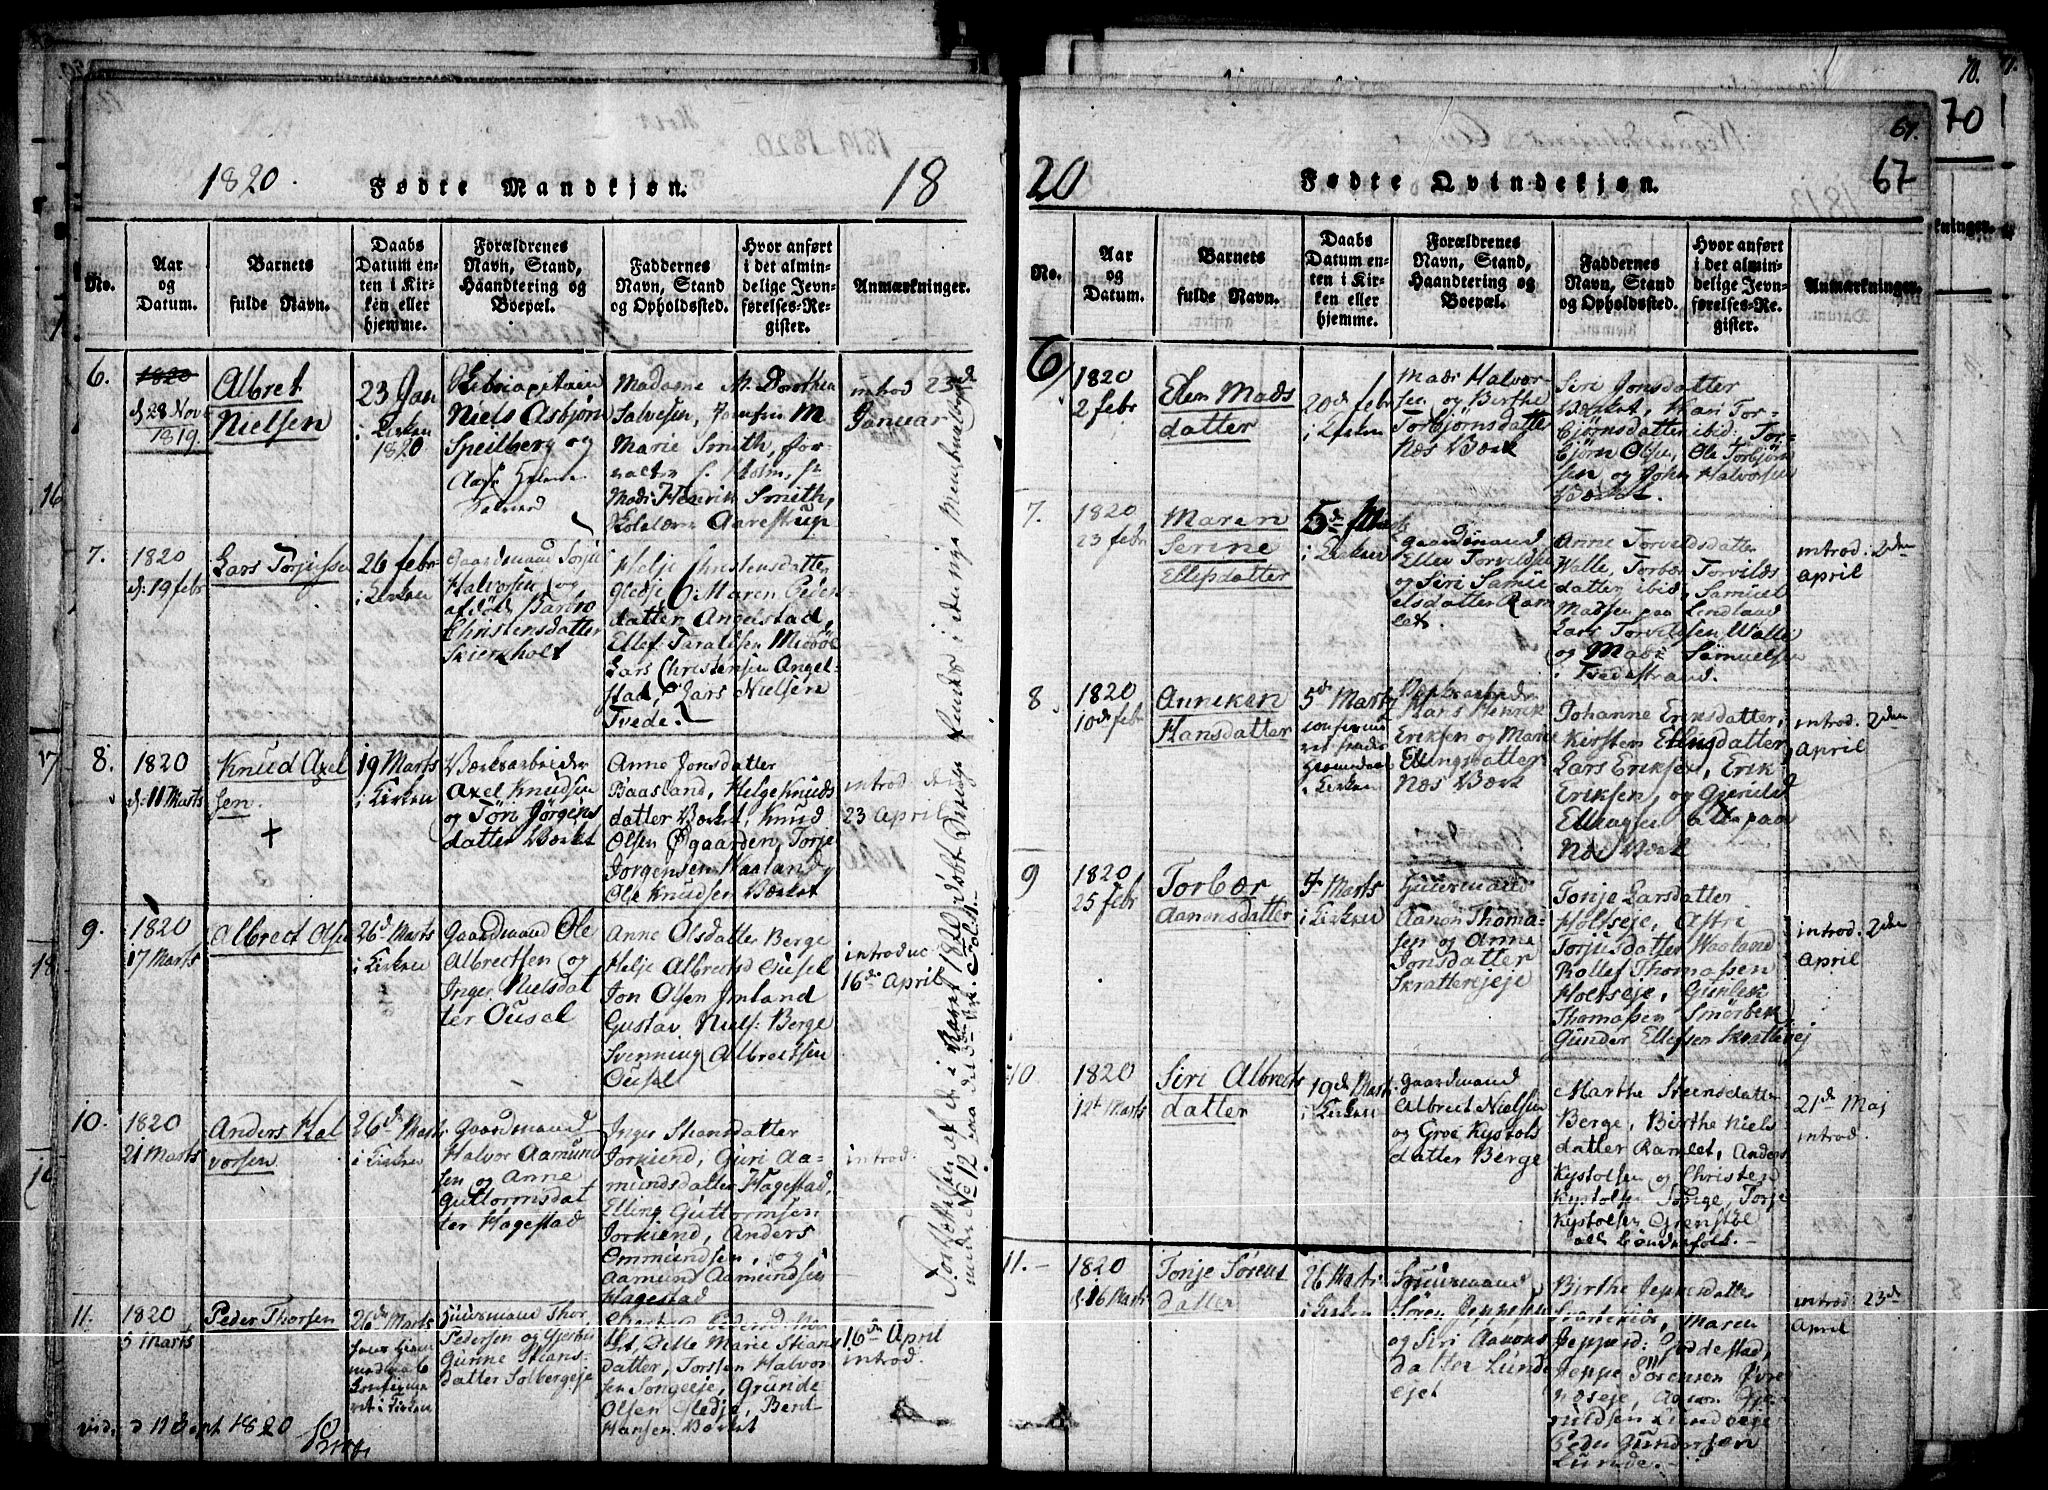 1820.
Fødte Mandkjøn.
18
No.
Aar og Datum.
Barnets fulde Navn.
Daabs Datum enten i Kirken eller hjemme.
Forældrenes Navn, Stand, Haandtering og Boepæl.
Faddernes Navn, Stand og Opholdssted.
Hvor anført i det almindelige Jevnførelses-Register.
Anmærkninger.
6.
1820
d. 28 Nov
1819.
Albret
Nielsen
23 Jan
i Kirken
1820
Niels Asbjørn
Speilberg og
Madame M. Dorothea
Salvesen, Jomfru M
Marie Smith, for-
valter Holm, Hr
Mads Henrik Smith,
Aarestrup
introd 23de
Januar
7.
1820
d: 19 febr
Lars Torjusse
26 febr
i Kirken
Gaardmand Torju
Halvorsen og
afdöde Barbro
Christensdatter
Skierkholt
Helje Christensdatter
Gledje Maren Peders
datter Angelstad,
Ellef Taraldsen
Lars Christensen Angel-
stad, Lars Nielsen
Tvede.
8.
1820
d. 11 Marts
Knud Axel
sen.
+
19 Marts
i Kirken
Værksarbeider
Axel Knudsen
og Töri Jörgens
datter Værket
Anne Jonsdatter
Baasland, Helge Knuds
datter Værket, Knud
Olsen Øgaarden, Torje
Jorgensen Waaland og
Ole Knudsen Værket
introd den
23 April
9.
1820
17 Marts
Albrect Olse
26de Marts
i Kirken
Gaardmand Ole
Albrectsen og
Inger Nielsdat
ter Ousel
Anne Olsdatter Berge
Helje Albrectsd Ousel
Jon Olsen Imland
Gustav Niels: Berge
Svenning Albrectsen
Ousel
introduc
16de April
10.
1820
21 Marts
Anders Hal
vorsen
26de Marts
i Kirken
Gaardmand
Halvor Aamund
sen og Anne
Guttormsdat
ter Hagestad
Inger Steansdatter
Jorkiend, Guri Aa-
mundsdatter Hagestad,
Elling Guttormsen
Jorkiend, Anders
Ommundsen, og
Aamund Aamundsen
Hagestad
introd.
11.
1820
5 Marts
Peder Thorsen
26de Marts
i Kirken
Huusmand Thor
Pedersen og
Gunne Steans-
datter Solbergeje
Marie Steans
datter, Torsten Halvor
sen Songeeje, Grunde
Olsen Gledje, Bent
Hansen Værket
16de April
introd.
vid. d 11 Sept 1820
Fortsættelsen af de i Aaret 1820 döbte Drenge kiendes i den nye Ministerialbog
under No 12 paa det 3de Fol.
20
Fødte Qvindekjøn.
67.
67
70.
70
kninger.
No.
Aar og Datum.
Barnets fulde Navn.
Daabs Datum enten i Kirken eller hjemme.
Forældrenes Navn, Stand, Haandtering og Boepæl.
Faddernes Navn, Stand og Opholdssted.
Hvor anført i det almindelige Jevnførelses-Register.
Anmærkninger.
6
1820
2 febr
Elen Mads
datter
20de febr
i Kirken
Mads Halvor-
sen og Birthe
Torbjörnsdatter
Næs Værk
Siri Jonsdatter
Værket, Kari Tor-
björnsdatter ibid: Tor-
björn Olsen, Ole Torbjörn
sen og John Halvorsen
Værket.
7.
1820
23 febr
Maren
Serine
Ellefsdatter
5de Marts
i Kirken
Gaardmand
Ellev Torvildsen
og Siri Samu
elsdatter Ram
let.
Anne Torvildsdatter
Walle, Torbær Torvilds
datter ibid, Samuel
Madsen paa Lindland
Lars Torvildsen Walle
og Mads Samuelsen
i Tvedestrand.
introd: 2den
April
8.
1820
10de febr
Anneken
Hansdatter
5de Marts
i Kirken
Værksarbeider
Hans Henrik
Eriksen og Marie
Ellingsdatter
Næs Værk
Johanne Eriksdatter,
Kirsten Ellingsdatter
Lars Eriksen, Erik
Eriksen og
Ellingsen alle paa
Næs Værk
introd. 2den
April
9
1820
25 febr
Torbær
Aanonsdatter
7de Marts
i Kirken
Huusmand
Aanon Thoma-
sen og Anne
Jonsdatter
Skratterejeje
Tonje Larsdatter
Holtseje, Astri
Torjusdatter Waaland
Rollef Thomassen
Holtseje, Gunlek
Thomassen Smörbek
Gunder Ellefsen Skratterej
introd. 2den
April
10
1820
12te Marts
Siri Albrects
datter
19de Marts
i Kirken
Gaardmand
Albrect Nielsen
og Groe Kystols
datter Berge
Marthe Steensdatter
Berge, Birthe Niels
datter Ramlet, Anders
Kystolsen og Christen
Kystolsen Songe, Torje
Kystolsen Grenstöl
alle Bondefolk.
21de Maj
introd.
11.
1820
d. 16 Marts
Tonje Sörens
datter
26 Marts
i Kirken
Huusmand
Sören Jeppesen
og Siri Aanons
datter Lunde
ejet
Birthe Jeppesdatter
Maren
Jeppesd: Goddestad,
Jeppe Sörensen
Aanon Gje-
ruldsen Lundveje
Peder Gundersen
Lunde.
introd: 23de
April